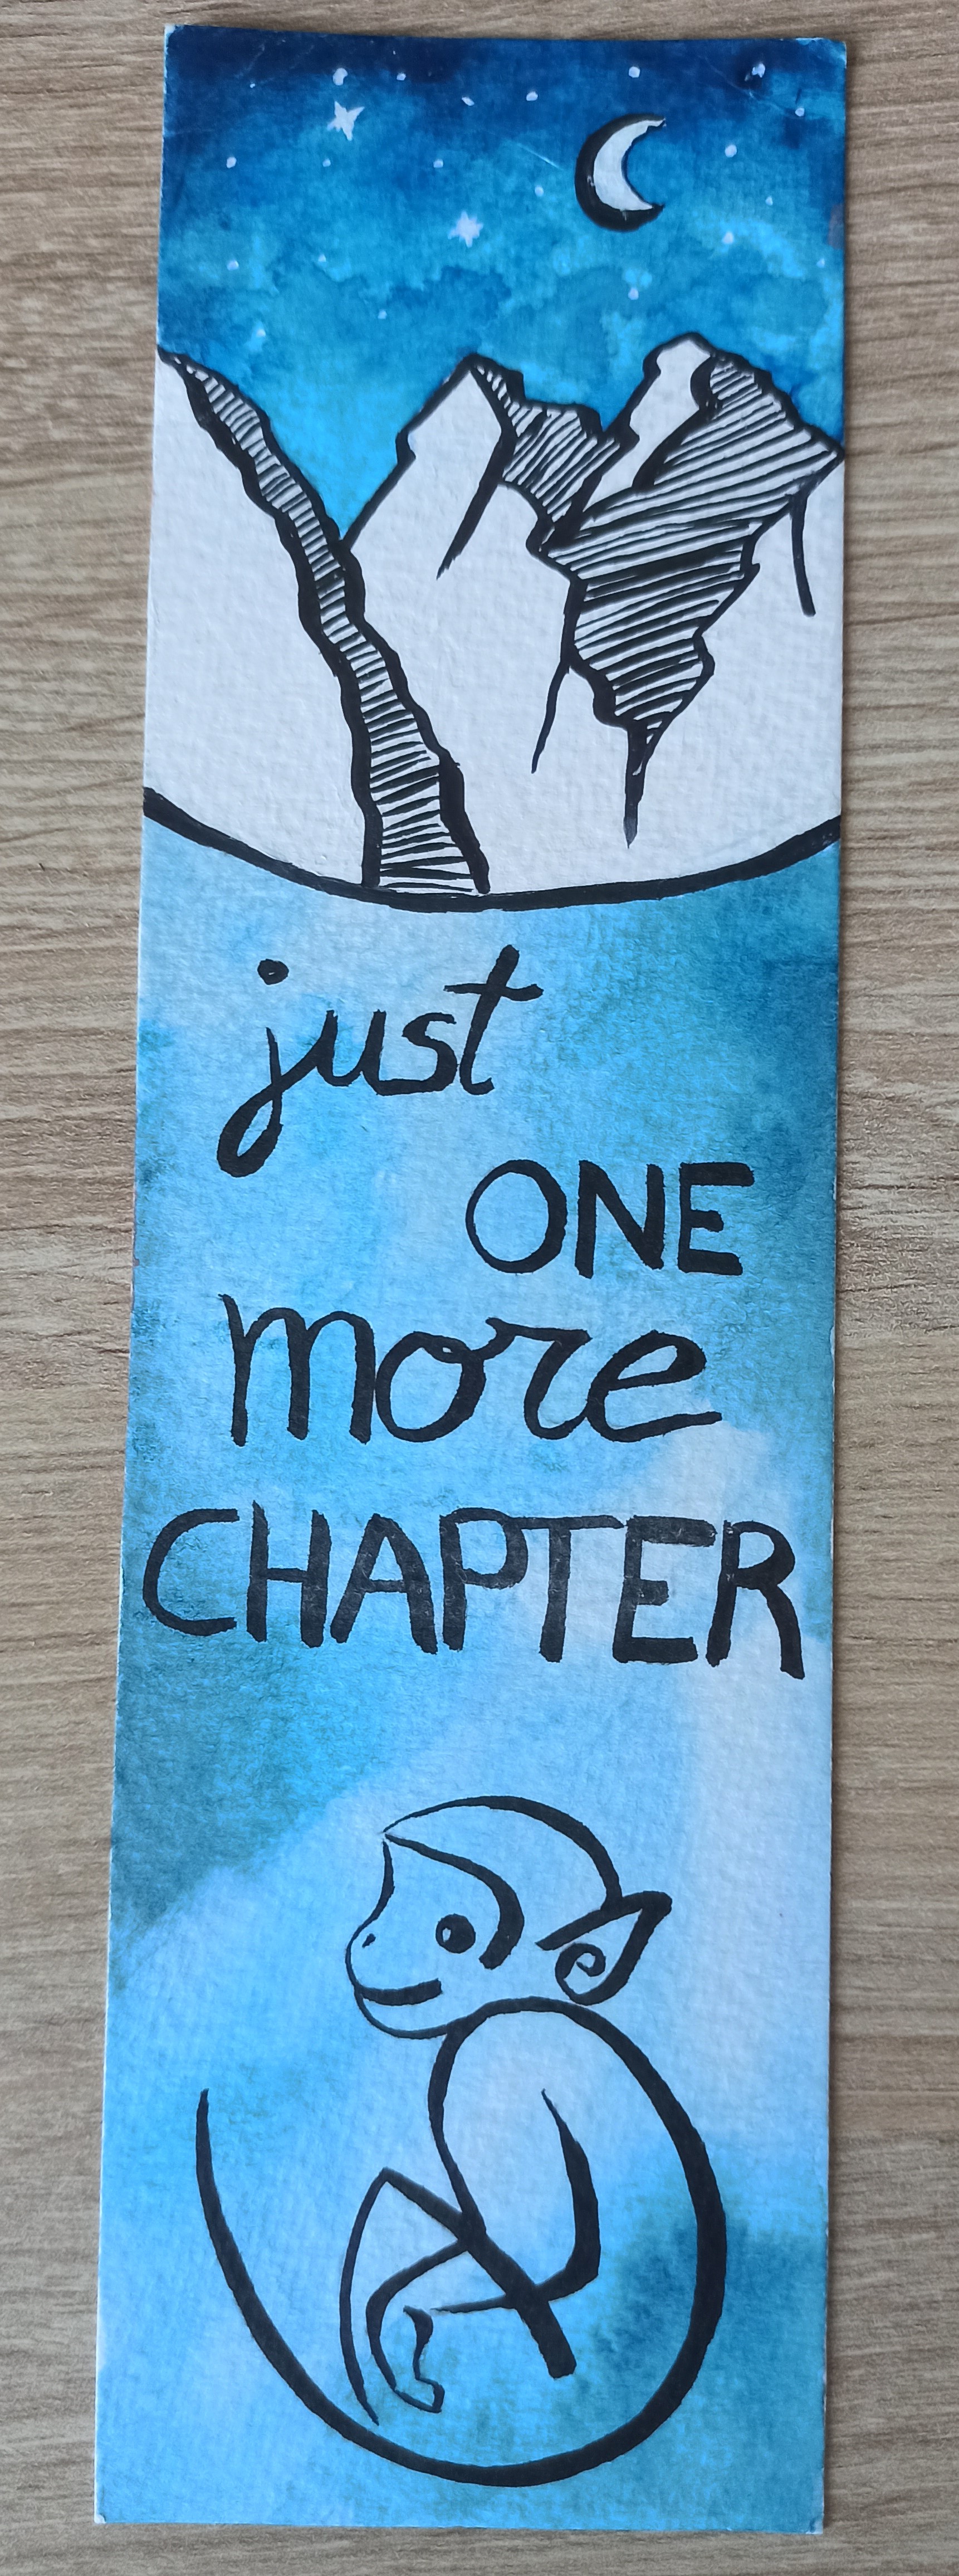 just
ONE
more
CHAPTER